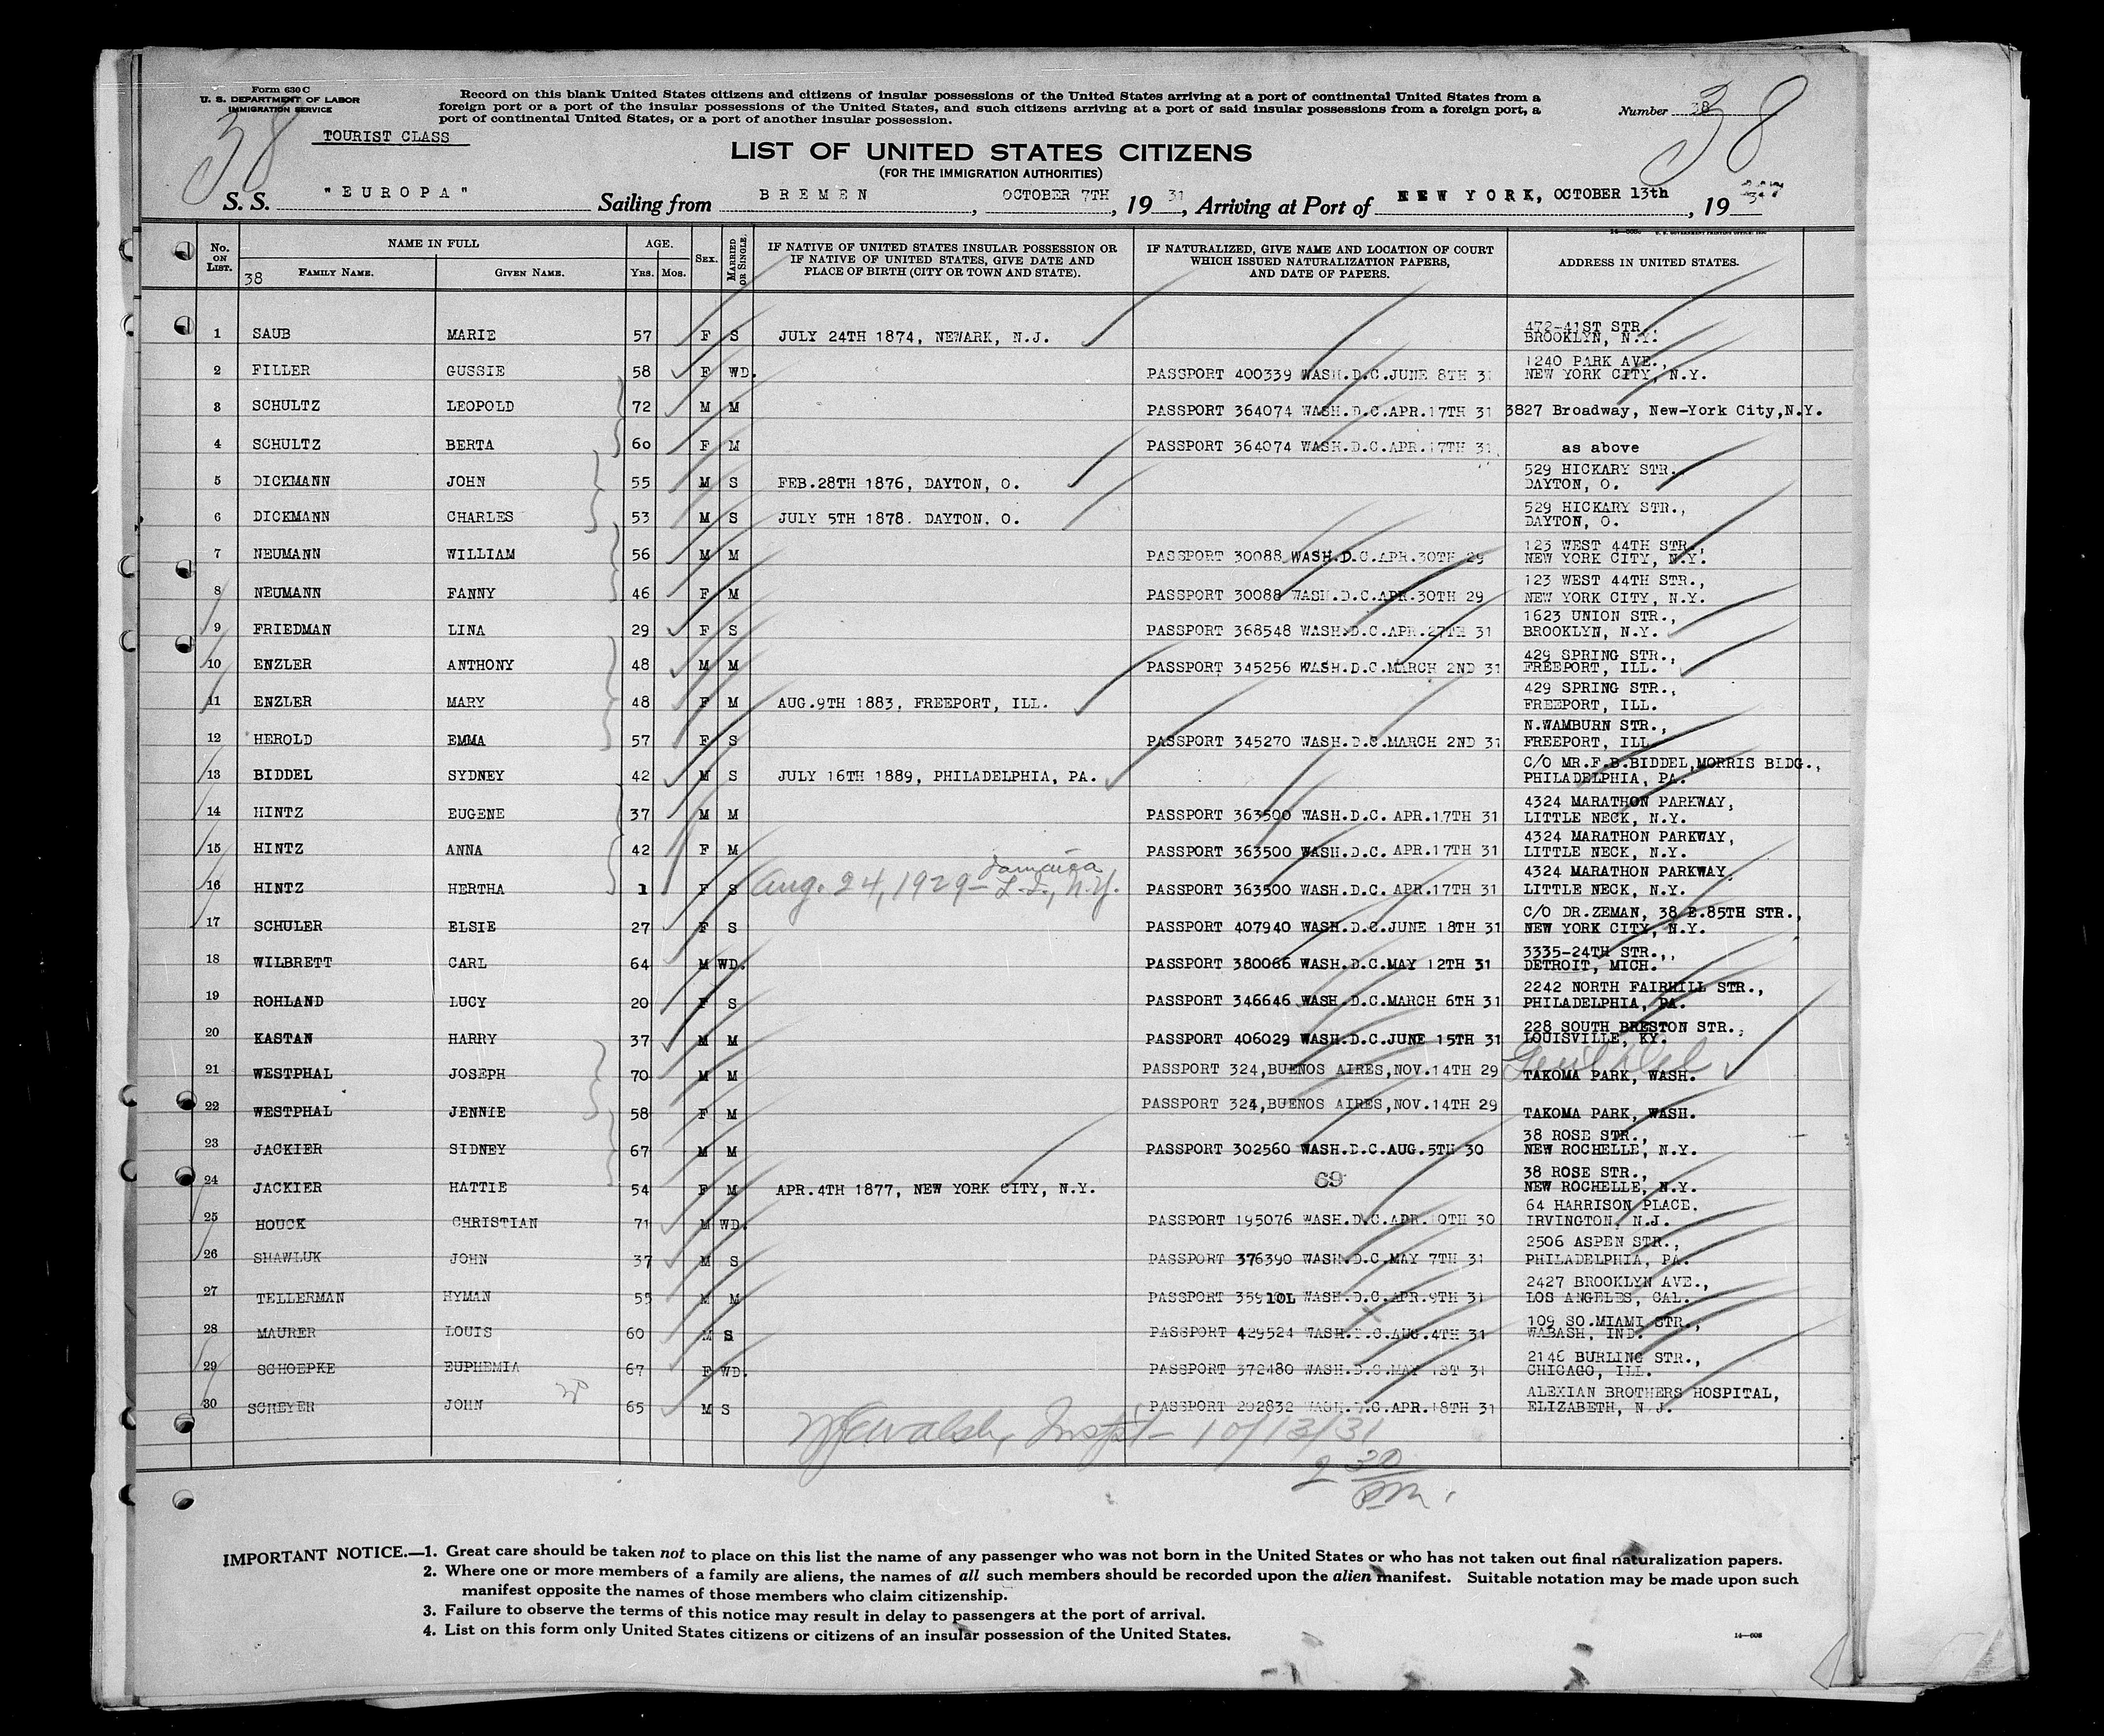 Form 630 C
U. S. DEPARTMENT OF LABOR
IMMIGRATION SERVICE
38
TOURIST CLASS
Record on this blank United States citizens and citizens of insular possessions of the United States arriving at a port of continental United States from a
foreign port or a port of the insular possessions of the United States, and such citizens arriving at a port of said insular possessions from a foreign port, a
port of continental United States, or a port of another insular possession.
Number 38
38
LIST OF UNITED STATES CITIZENS
(FOR THE IMMIGRATION AUTHORITIES)
S. S. "EUROPA" Sailing from BREMEN, OCTOBER 7TH, 19 31, Arriving at Port of NEW YORK, OCTOBER 13th, 19
No. ON LIST. NAME IN FULL AGE. SEX. MARRIED OR SINGLE. IF NATIVE OF UNITED STATES INSULAR POSSESSION OR IF NATIVE OF UNITED STATES, GIVE DATE AND PLACE OF BIRTH (CITY OR TOWN AND STATE). IF NATURALIZED, GIVE NAME AND LOCATION OF COURT WHICH ISSUED NATURALIZATION PAPERS, AND DATE OF PAPERS. ADDRESS IN UNITED STATES.
38 FAMILY NAME. GIVEN NAME. YRS. MOS.
1 SAUB MARIE 57 F S JULY 24TH 1874, NEWARK, N.J. 472-41ST STR., BROOKLYN, N.Y.
2 FILLER GUSSIE 58 F WD. PASSPORT 400339 WASH.D.C.JUNE 8TH 31 1240 PARK AVE., NEW YORK CITY, N.Y.
3 SCHULTZ LEOPOLD 72 M M PASSPORT 364074 WASH.D.C.APR.17TH 31 3827 Broadway, New-York City,N.Y.
4 SCHULTZ BERTA 60 F M PASSPORT 364074 WASH.D.C.APR.17TH 31 as above
5 DICKMANN JOHN 55 M S FEB.28TH 1876, DAYTON, O. 529 HICKARY STR. DAYTON, O.
6 DICKMANN CHARLES 53 M S JULY 5TH 1878. DAYTON. O. 529 HICKARY STR., DAYTON, O.
7 NEUMANN WILLIAM 56 M M PASSPORT 30088 WASH.D.C.APR.30TH 29 123 WEST 44TH STR., NEW YORK CITY, N.Y.
8 NEUMANN FANNY 46 F M PASSPORT 30088 WASH.D.C.APR.30TH 29 123 WEST 44TH STR., NEW YORK CITY, N.Y.
9 FRIEDMAN LINA 29 F S PASSPORT 368548 WASH.D.C.APR.27TH 31 1623 UNION STR., BROOKLYN, N.Y.
10 ENZLER ANTHONY 48 M M PASSPORT 345256 WASH.D.C.MARCH 2ND 31 429 SPRING STR., FREEPORT, ILL.
11 ENZLER MARY 48 F M AUG.9TH 1883, FREEPORT, ILL. 429 SPRING STR., FREEPORT, ILL.
12 HEROLD EMMA 57 F S PASSPORT 345270 WASH.D.C.MARCH 2ND 31 N.WAMBURN STR., FREEPORT, ILL
13 BIDDEL SYDNEY 42 M S JULY 16TH 1889, PHILADELPHIA, PA. C/O MR.F.B.BIDDEL,MORRIS BLDG., PHILADELPHIA, PA.
14 HINTZ EUGENE 37 M M PASSPORT 363500 WASH.D.C. APR.17TH 31 4324 MARATHON PARKWAY, LITTLE NECK, N.Y.
15 HINTZ ANNA 42 F M PASSPORT 363500 WASH.D.C. APR.17TH 31 4324 MARATHON PARKWAY, LITTLE NECK, N.Y.
16 HINTZ HERTHA 1 F S Aug. 24, 1929 - Jamaica L.I., N.Y. PASSPORT 363500 WASH.D.C. APR.17TH 31 4324 MARATHON PARKWAY, LITTLE NECK, N.Y.
17 SCHULER ELSIE 27 F S PASSPORT 407940 WASH.D.C.JUNE 18TH 31 C/O DR.ZEMAN, 38 E.85TH STR., NEW YORK CITY, N.Y.
18 WILBRETT CARL 64 M WD. PASSPORT 380066 WASH.D.C.MAY 12TH 31 3335-24TH STR.,, DETROIT, MICH.
19 ROHLAND LUCY 20 F S PASSPORT 346646 WASH.D.C.MARCH 6TH 31 2242 NORTH FAIRHILL STR., PHILADELPHIA, PA.
20 KASTAN HARRY 37 M M PASSPORT 406029 WASH.D.C.JUNE 15TH 31 228 SOUTH BRESTON STR., LOUISVILLE, KY.
21 WESTPHAL JOSEPH 70 M M PASSPORT 324,BUENOS AIRES,NOV.14TH 29 TAKOMA PARK, WASH.
22 WESTPHAL JENNIE 58 F M PASSPORT 324,BUENOS AIRES,NOV.14TH 29 TAKOMA PARK, WASH.
23 JACKIER SIDNEY 67 M M PASSPORT 302560 WASH.D.C.AUG.5TH 30 38 ROSE STR., NEW ROCHELLE, N.Y.
24 JACKIER HATTIE 54 F M APR.4TH 1877, NEW YORK CITY, N.Y. 69 38 ROSE STR., NEW ROCHELLE, N.Y.
25 HOUCK CHRISTIAN 71 M WD. PASSPORT 195076 WASH.D.C.APR.10TH 30 64 HARRISON PLACE. IRVINGTON, N.J.
26 SHAWLUK JOHN 37 M S PASSPORT 376390 WASH.D.C.MAY 7TH 31 2506 ASPEN STR., PHILADELPHIA, PA.
27 TELLERMAN HYMAN 55 M M PASSPORT 35910L WASH.D.C.APR.9TH 31 2427 BROOKLYN AVE., LOS ANGELES, CAL.
28 MAURER LOUIS 60 M S PASSPORT 429524 WASH.D.C.AUG.4TH 31 109 SO.MIAMI STR., WABASH, IND.
29 SCHOEPKE EUPHEMIA 67 F WD. PASSPORT 372480 WASH.D.C.MAY 1ST 31 2146 BURLING STR., CHICAGO, ILL.
30 SCHEYER JOHN 65 M S PASSPORT 292832 WASH.D.C.APR.18TH 31 ALEXIAN BROTHERS HOSPITAL, ELIZABETH, N.J.
Walsh, Inspt - 10/13/31
2 30 PM.
IMPORTANT NOTICE.—1. Great care should be taken not to place on this list the name of any passenger who was not born in the United States or who has not taken out final naturalization papers.
2. Where one or more members of a family are aliens, the names of all such members should be recorded upon the alien manifest. Suitable notation may be made upon such
manifest opposite the names of those members who claim citizenship.
3. Failure to observe the terms of this notice may result in delay to passengers at the port of arrival.
4. List on this form only United States citizens or citizens of an insular possession of the United States.
14—608